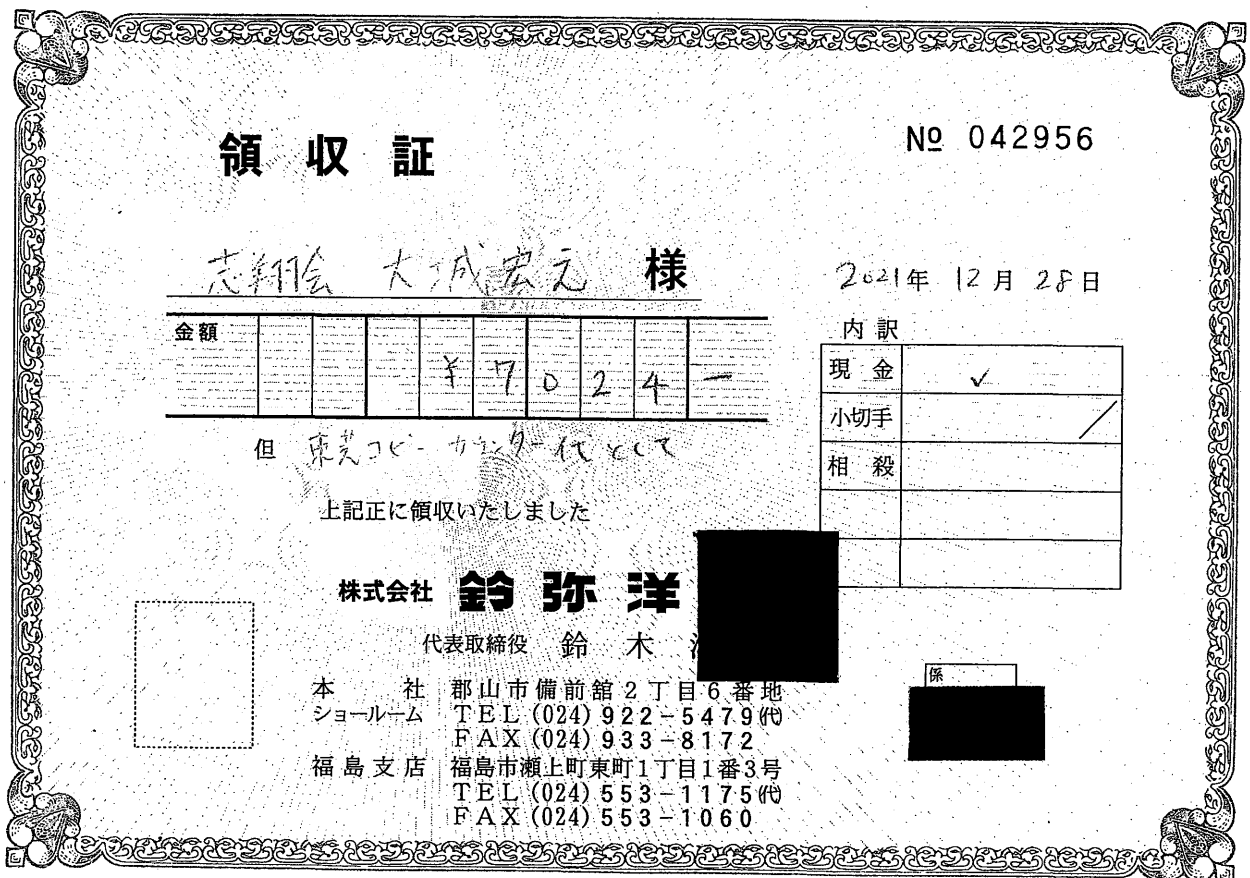 領収証
№ 042956
志翔会 大城宏之 様
2021年 12月 28日
金額 ¥7024-
内訳
現金 ✓
小切手
相殺
但 東芝コピーカウンター代として
上記正に領収いたしました
株式会社 鈴弥洋
代表取締役 鈴木
本社 郡山市備前舘2丁目6番地
ショールーム TEL(024)922-5479㈹
FAX(024)933-8172
福島支店 福島市瀬上町東町1丁目1番3号
TEL(024)553-1175㈹
FAX(024)553-1060
係